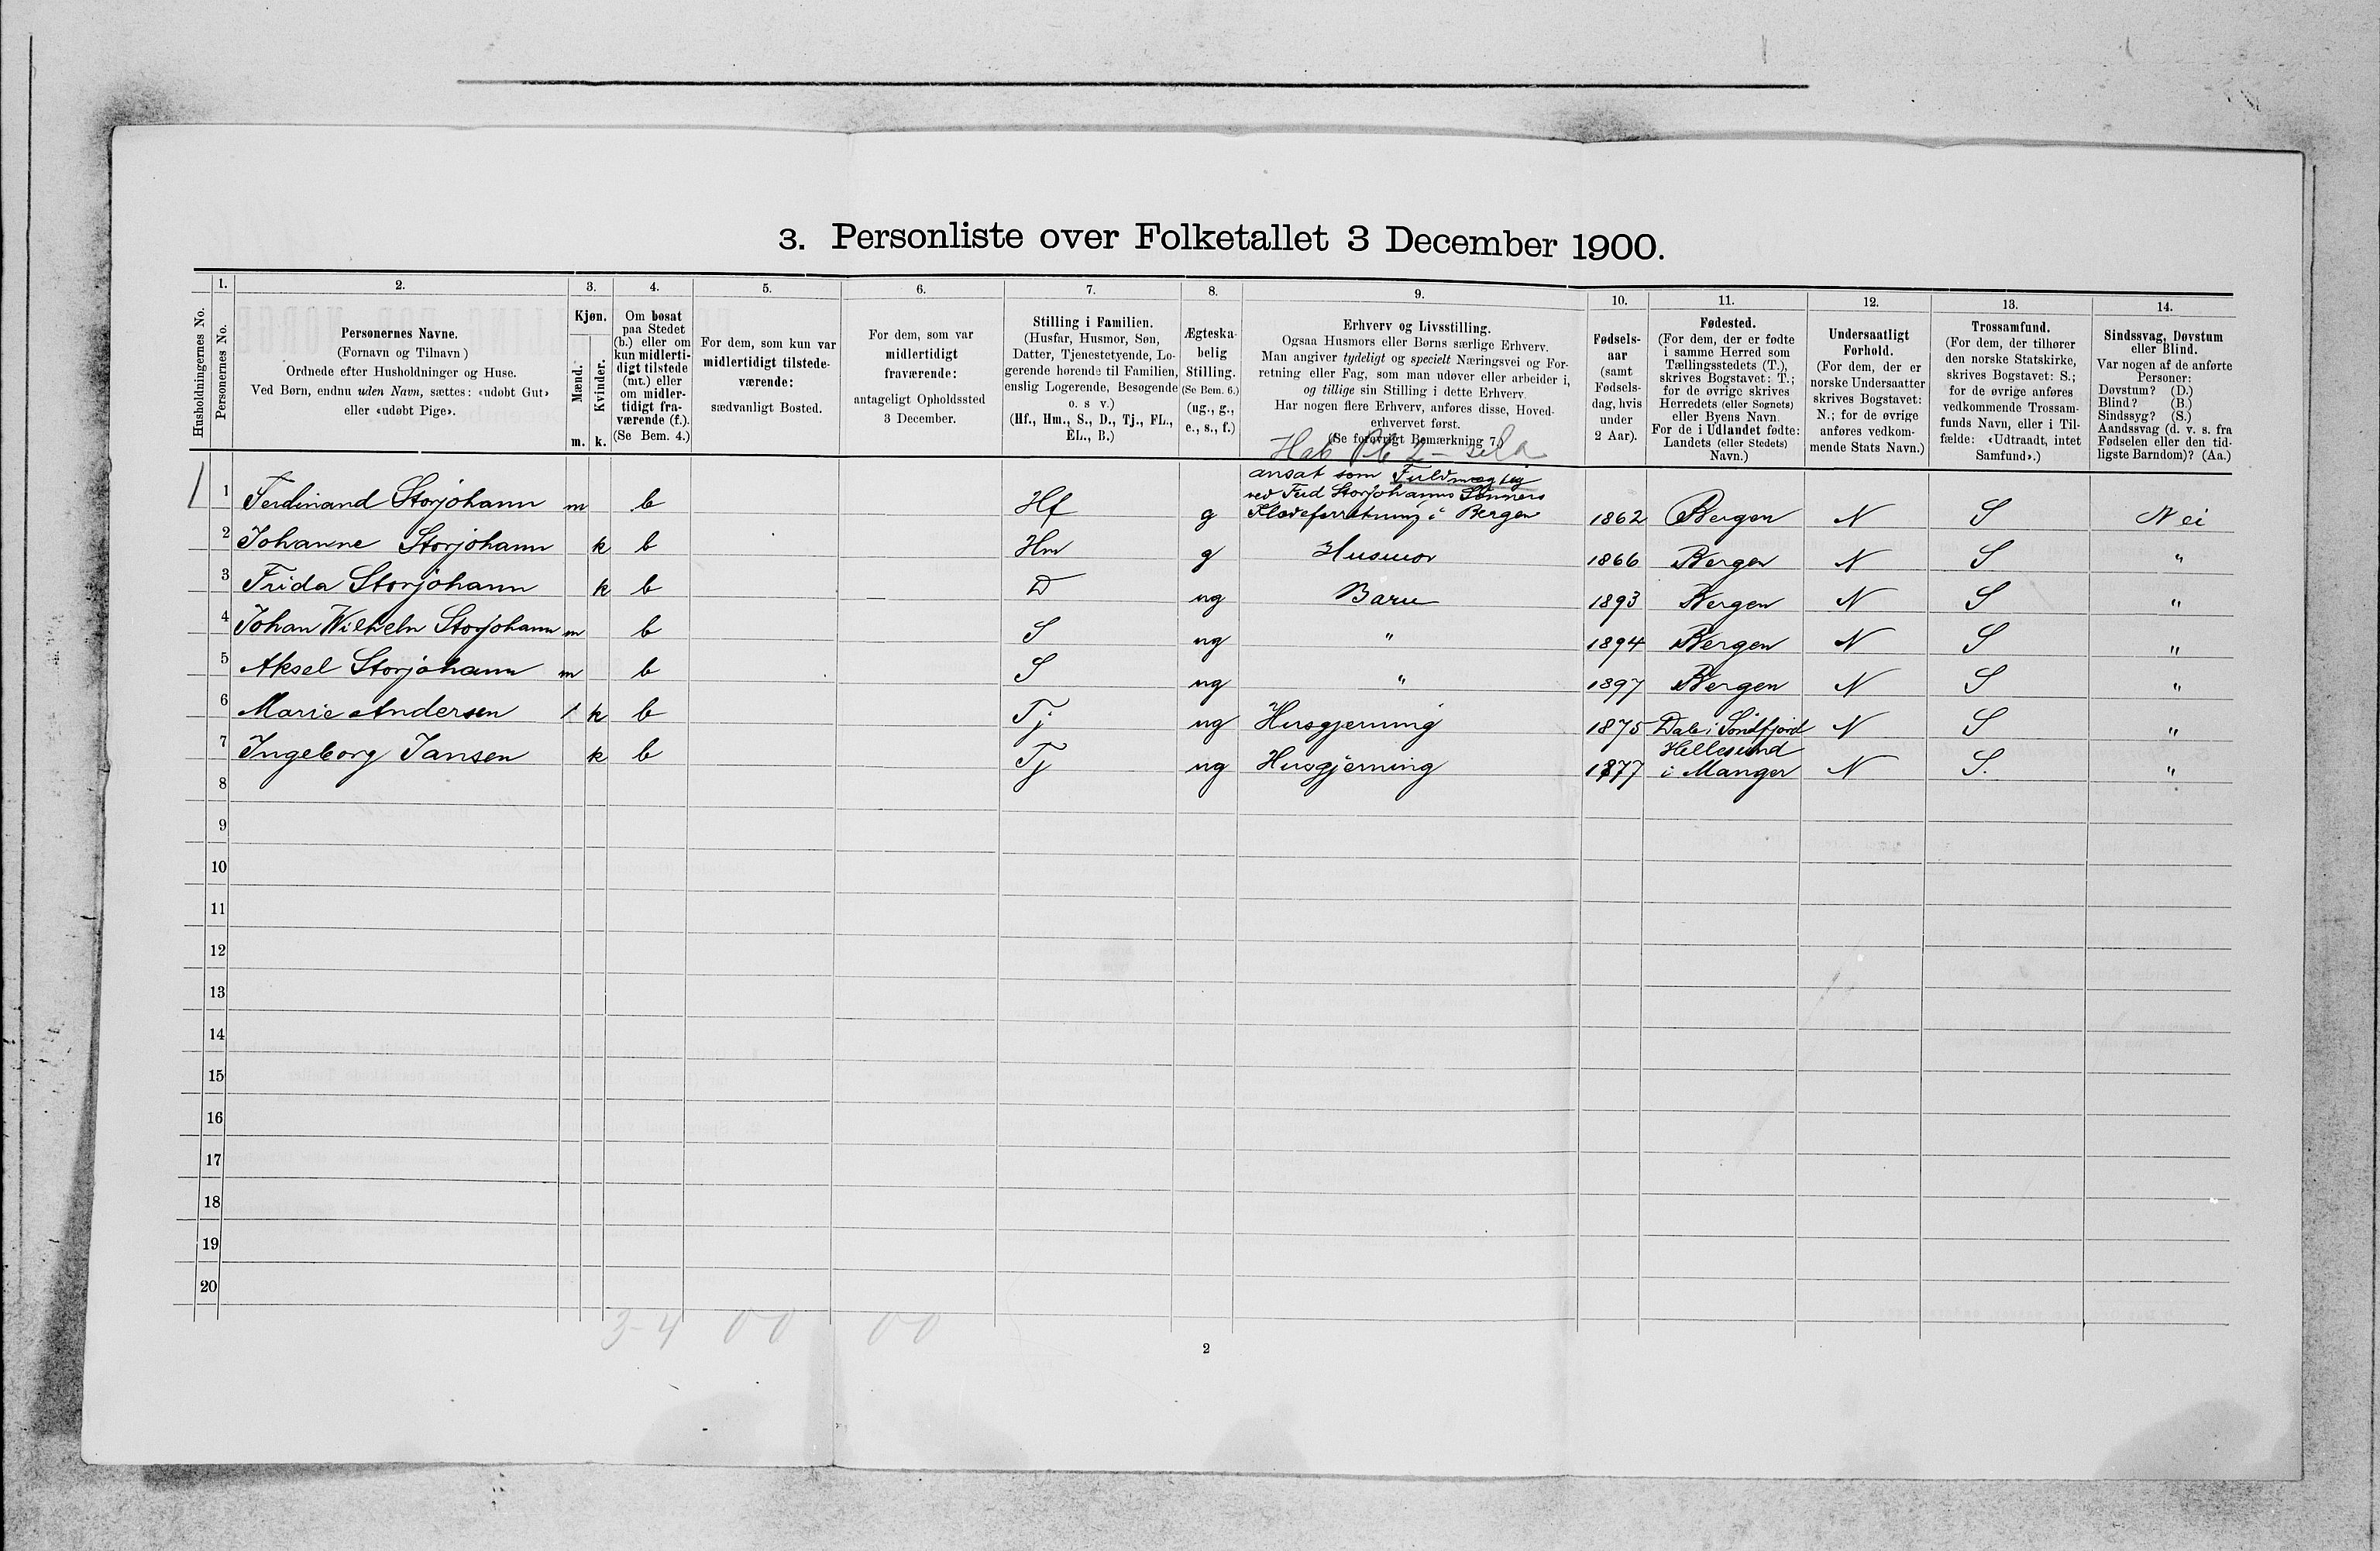 3. Personliste over Folketallet 3 December 1900.
1. 2. 3. 4. 5. 6. 7. 8. 9. 10. 11. 12. 13. 14.
Husholdningernes No.
Personernes No.
Personernes Navne.
(Fornavn og Tilnavn)
Ordnede efter Husholdninger og Huse.
Ved Børn, endnu uden Navn, sættes: «udøbt Gut»
eller «udøbt Pige».
Kjøn.
Mænd.
Kvinder.
m. k.
Om bosat
paa Stedet
(b.) eller om
kun midlerti-
digt tilstede
(mt.) eller
om midler-
tidigt fra-
værende (f.).
(Se Bem. 4.)
For dem, som kun var
midlertidigt tilstede-
værende:
sædvanligt Bosted.
For dem, som var
midlertidigt
fraværende:
antageligt Opholdssted
3 December.
Stilling i Familien.
(Husfar, Husmor, Søn,
Datter, Tjenestetyende, Lo-
gerende hørende til Familien,
enslig Logerende, Besøgende
o. s v.)
(Hf., Hm., S., D., Tj., FL.,
EL., B.)
Ægteska-
belig
Stilling.
(Se Bem. 6.)
(ug., g.,
e., s., f.)
Erhverv og Livsstilling.
Ogsaa Husmors eller Børns særlige Erhverv.
Man angiver tydeligt og specielt Næringsvei og For-
retning eller Fag, som man udøver eller arbeider i,
og tillige sin Stilling i dette Erhverv.
Har nogen flere Erhverv, anføres disse, Hoved-
erhvervet først.
(Se forøvrigt Bemærkning 7.)
Fødsels-
aar
(samt
Fødsels-
dag, hvis
under
2 Aar).
Fødested.
(For dem, der er fødte
i samme Herred som
Tællingsstedets (T.),
skrives Bogstavet: T.;
for de øvrige skrives
Herredets (eller Sognets)
eller Byens Navn
For de i Udlandet fødte:
Landets (eller Stedets)
Navn.)
Undersaatligt
Forhold.
(For dem, der er
norske Undersaatter
skrives Bogstavet:
N.; for de øvrige
anføres vedkom-
mende Stats Navn.)
Trossamfund.
(For dem, der tilhører
den norske Statskirke,
skrives Bogstavet: S.;
for de øvrige anføres
vedkommende Trossam-
funds Navn, eller i Til-
fælde: «Udtraadt, intet
Samfund».)
Sindssvag, Døvstum
eller Blind.
Var nogen af de anførte
Personer:
Døvstum? (D.)
Blind? (B.)
Sindssyg? (S.)
Aandssvag (d. v. s. fra
Fødselen eller den tid-
ligste Barndom)? (Aa.)
ansat som Fuldmægtig
ved Ferd Storjohanns Sønners
1 1 Ferdinand Storjohann m b Hf g Klædeforretning i Bergen 1862 Bergen N S Nei
2 Johanne Storjohann k b Hm g Husmor 1866 Bergen N S "
3 Frida Storjohann k b D ug Barn 1893 Bergen N S "
4 Johan Wilhelm Storjohann m b S ug " 1894 Bergen N S "
5 Aksel Storjohann m b S ug " 1897 Bergen N S "
6 Marie Andersen 1 k b Tj ug Husgjerning 1875 Dale i Söndfjord N S "
Hellesund
7 Ingeborg Jansen k b Tj ug Husgjerning 1877 i Manger N S. "
8
9
10
11
12
13
14
15
16
17
18
19
20
3-4 0 0 0 0
2